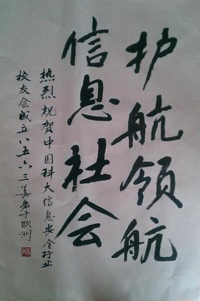 护航领航
信息社会
热烈祝贺中国科大信息安全行业
校友会成立八五六三姜于欧洲